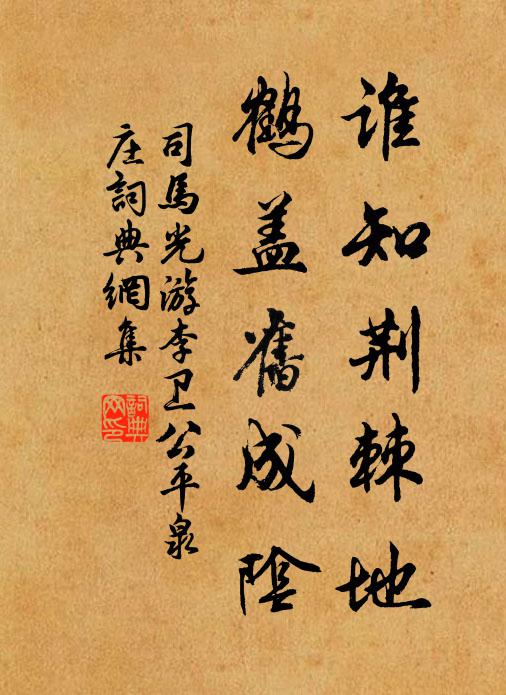 谁知荆棘地
鹤盖旧成阴
司马光游李卫公平泉
庄词典网集
词典
网印